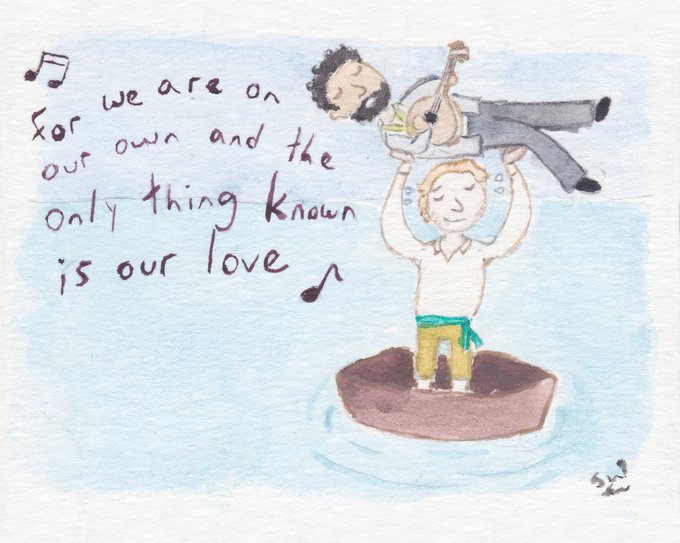 for we are on
our own and the
only thing known
is our love